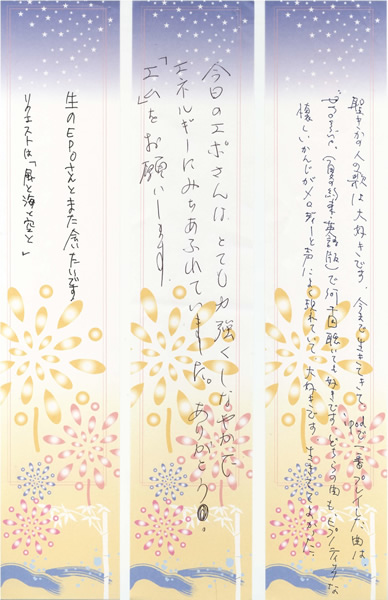 聖なるかの人の歌は大好きです。今まで生きてきて ipodで一番プレイした曲は
(夏の約束・英語版)で何千回聴いても好きです。どちらの曲もヒプノティックな
懐しいかんじがメロディーと声によく現れていて大好きです。生きててよかった
今日のエポさんは とても力強くしなやかで
エネルギーにみちあふれていました。ありがとう。
「エム」をお願いします。
生のEPOさんとまた会いたいです
リクエストは「風と海と空と」